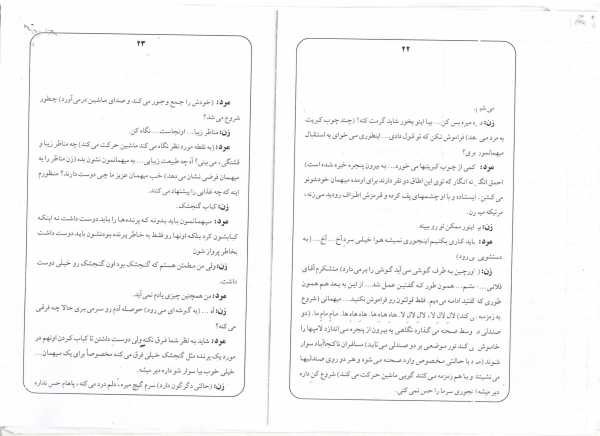 ۲۲
می شدی.
زن: ... میره بس کن... بیا اینو بخور شاید گرمت کنه؟ (چند چوب کبریت
به مرد می دهد) فراموش نکن که تو قول دادی... اینطوری می خوای به استقبال
میهمانمون بری؟
مرد: کمی از چوب کبریتها می خورد... به بیرون پنجره خیره شده است)
احمق انگار نه انگار که توی این اطاق دو نفر دارند برای اومدن میهمان خودشونو
می کشن. ایستاده و با او چشمهای پف کرده و قرمزش اطراف رو دید می زنه،
مرتیکه
زن: اینور ممکن تو رو ببینه.
مرد: باید کاری بکنیم اینجوری نمیشه هوا خیلی سرد آخ... آخ... (به
دستشویی می رود)
زن: (دورچین به طرف گوشی می آید گوشی را برمی دارد) متشکرم آقای
فلانی... همون طور که گفتین عمل شد... از این به بعد هم همون
طوری که گفتید ادامه می دیم. فقط قولتون رو فراموش نکنید... میهمانی (شروع
به زمزمه می کند) لال لال لا، لال لال لا. هاه هاه ها. هاه هاه ها. مام مام ما. (دو
صندلی در وسط صحنه می گذارد نگاهی به بیرون از پنجره می اندازد لامپها را
خاموش می کند نور موضعی بر دو صندلی می تابد) مسافران ناکجاآباد سوار
شوند (مرد با حالتی مخصوص وارد صحنه می شود و هر دو روی صندلیها
می نشینند و با هم زمزمه می کنند گویی ماشین حرکت می کند) شروع کن داره
دیر میشه! نجوری سرما را حس نمی کنی.
۲۳
مرد: (خودش را جمع و جور می کند و صدای ماشین درمی آورد) چطور
شروع می شه؟
زن: مناظر زیبا... اونجاست... نگاه کن
مرد: (به نقطه مورد نظر نگاه می کند ماشین حرکت می کند) چه مناظر زیبا و
قشنگی، می بینی؟ آه چه طبیعت زیبایی... به میهمانمون نشون بده (زن مناظر را به
میهمان فرضی نشان می دهد) خب میهمان عزیز ما چی دوست دارند؟ منظورم
اینه که چه غذایی را پیشنهاد می کنند.
زن: کباب گنجشک.
مرد: میهمانمون باید بدونه که پرنده ها را باید دوست داشت نه اینکه
کبابشون کرد بلکه اونها رو فقط به خاطر پرنده بودنشون باید دوست داشت
بخاطر پرواز شون
زن: ولی من مطمئن هستم که گنجشک بود اون گنجشک رو خیلی دوست
داشت.
مرد: من همچنین چیزی یادم نمی آید.
زن: اه... (به گوشه ای می رود) حوصله آدم رو سرمی بری حالا چه فرقی
می کنه؟
مرد: شاید به نظر شما فرق نکنه ولی دوست داشتن تا کباب کردن اونهم در
مورد یک پرنده مثل گنجشک خیلی فرق می کنه مخصوصاً برای یک میهمان...
خیلی خوب بیا سوار شو داره دیر میشه.
زن: (حالتی دگرگون دارد) سرم گیج میره، دلم درد می کنه، پاهام حس نداره